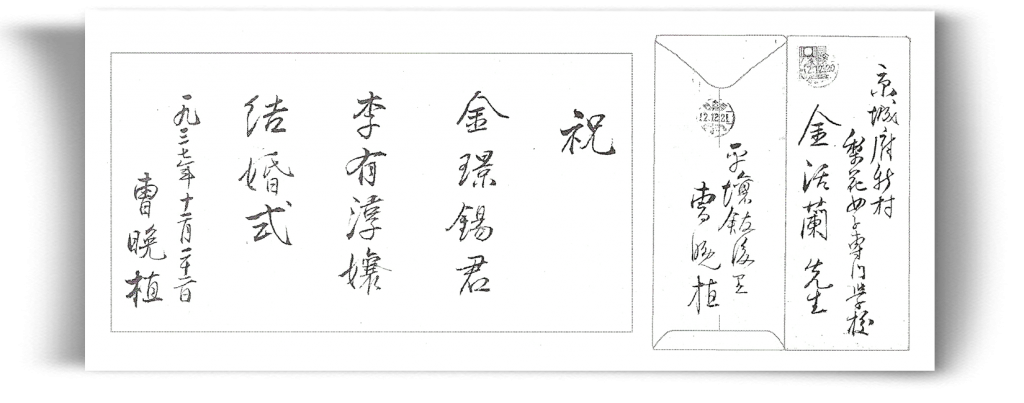 京城府新村
梨花女子專門學校
金活蘭 先生
12.12.20
12.12.21
平壤館後里
曺晩植
祝
金璟錫君
李有淳孃
結婚式
一九三七年十二月二十二日
曺晩植